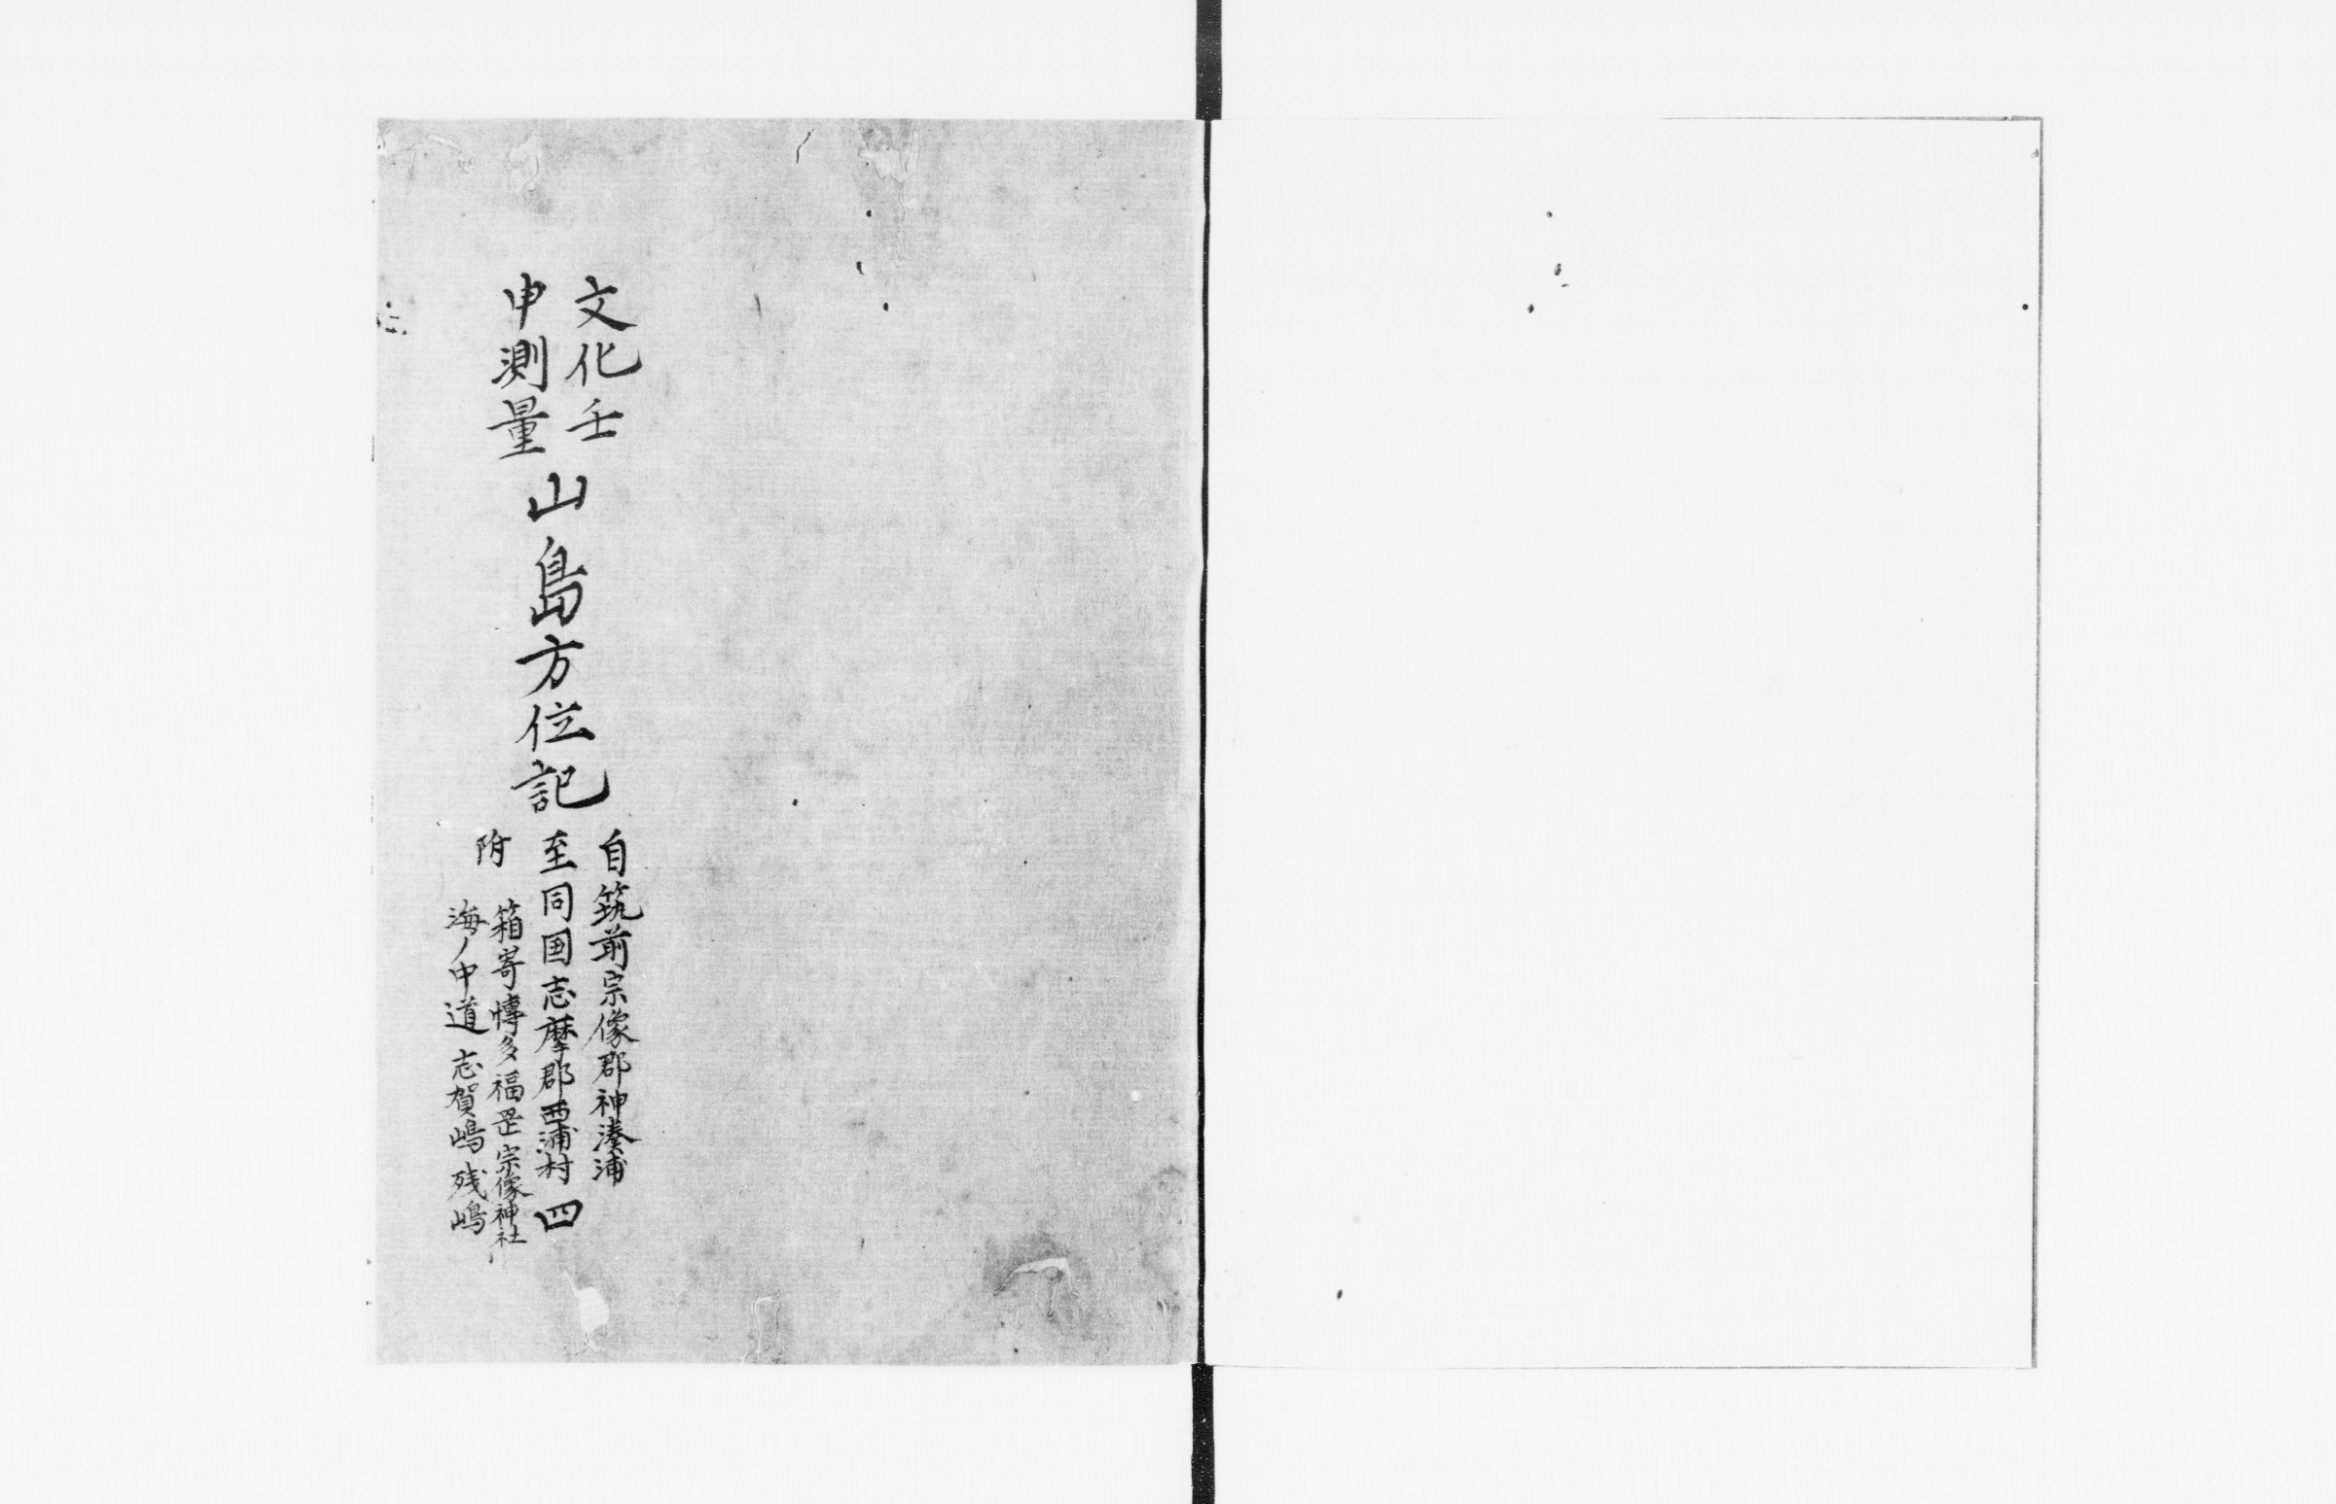 文化壬
申測量
山島方位記
自筑前宗像郡神湊浦
至同国志摩郡西浦村 四
附
箱寄博多福罡宗像神社
海ノ中道志賀嶋残嶋